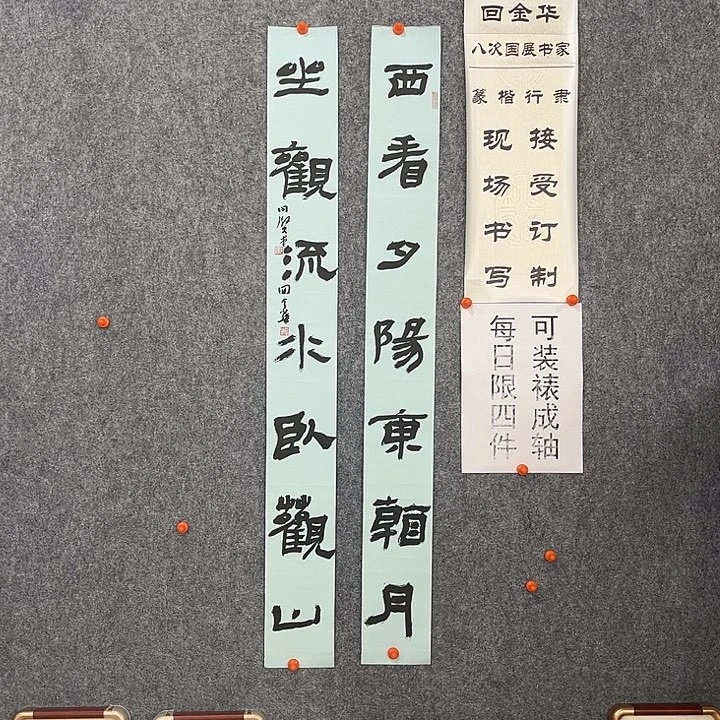 回金华
八次国展书家
篆楷行隶
接受订制
现场书写
可装裱成轴
每日限四件
西看夕陽東朝月
坐觀流水臥觀山
回金華